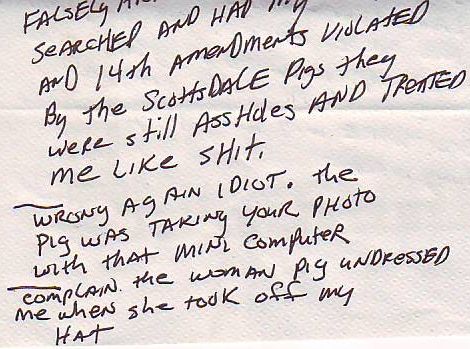 FALSELY
SEARCHED AND HAD my
AND 14th AmenDments VIOLATED
By the SCottsDALE Pigs they
weRe still AssHoles AND TREATED
me LIKE SHIT.
WRONG AGAIN IDIOT. the
PIG WAS TAKING YOUR PHOTO
with that MINI Computer
COMPLAIN. the WOMAN Pig UNDRESSED
me when she took off my
HAT